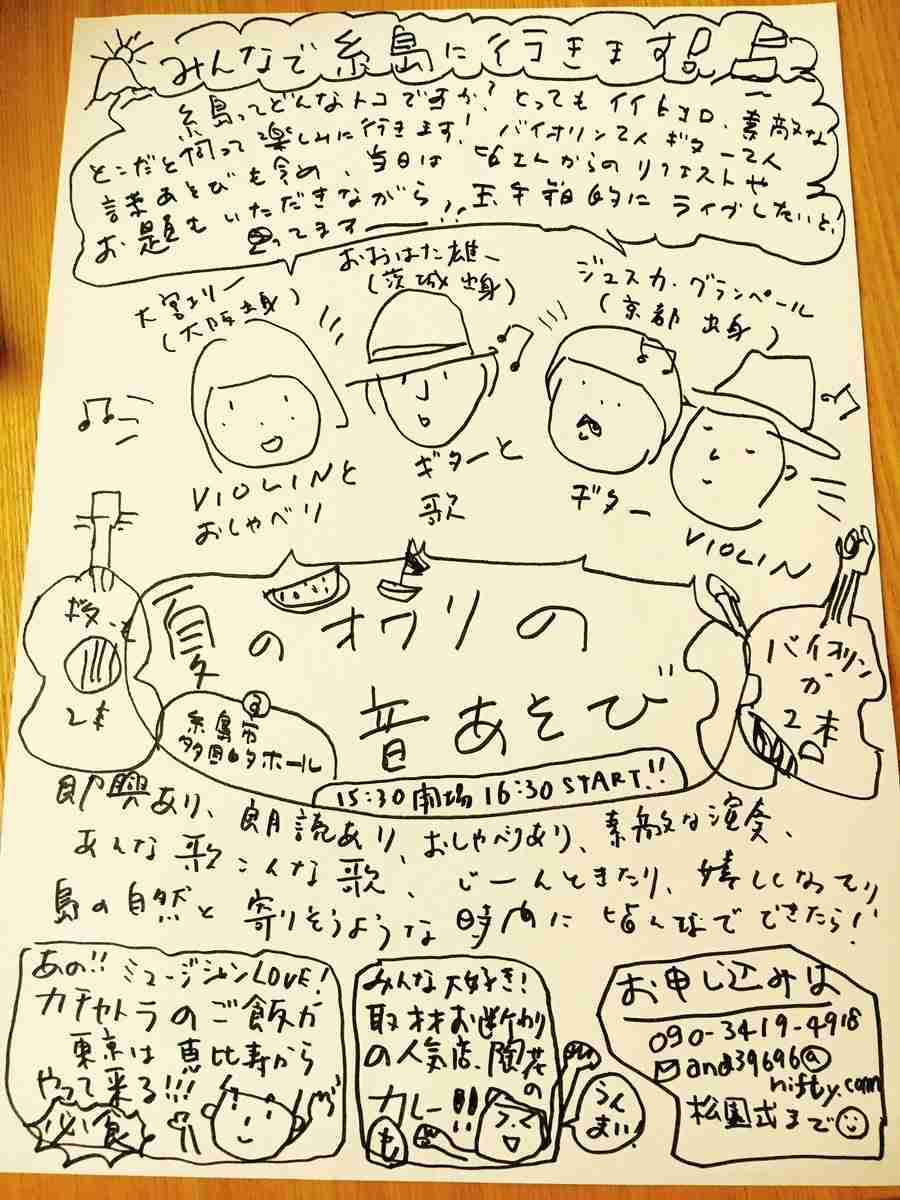 みんなで糸島に行きます!!
糸島ってどんなトコですか?とってもイイトコロ、素敵な
とこだと伺って楽しみに行きます!バイオリン二人ギター二人
言葉あそびも含め、当日は皆さんからのリクエストや
お題もいただきながら、玉手箱的にライブしたいと!
思ってます――!!
大宮エリー
(大阪出身)
おおはた雄一
(茨城出身)
ジェスカ・グランペール
(京都出身)
VIOLINと
おしゃべり
ギターと
歌
ギター
VIOLIN
ギター
2本
夏のオワリの
音あそび
@
糸島市
多目的ホール
15:30開場 16:30 START!!
バイオリン
が
2本
即興あり、朗読あり、おしゃべりあり、素敵な演奏、
あんな歌こんな歌、じーんときたり、嬉しくなったり
島の自然と寄りそうような時間に皆んなでできたら!
あの!!ミュージシャンLOVE!
カチャトラのご飯が
東京は恵比寿から
やって来る!!!
必食
みんな大好き!
取材お断わり
の人気店、陶花
の
カレー!!
も
うんまい!
お申し込みは
090-3419-4918
and39696@
nifty.com
松園式まで